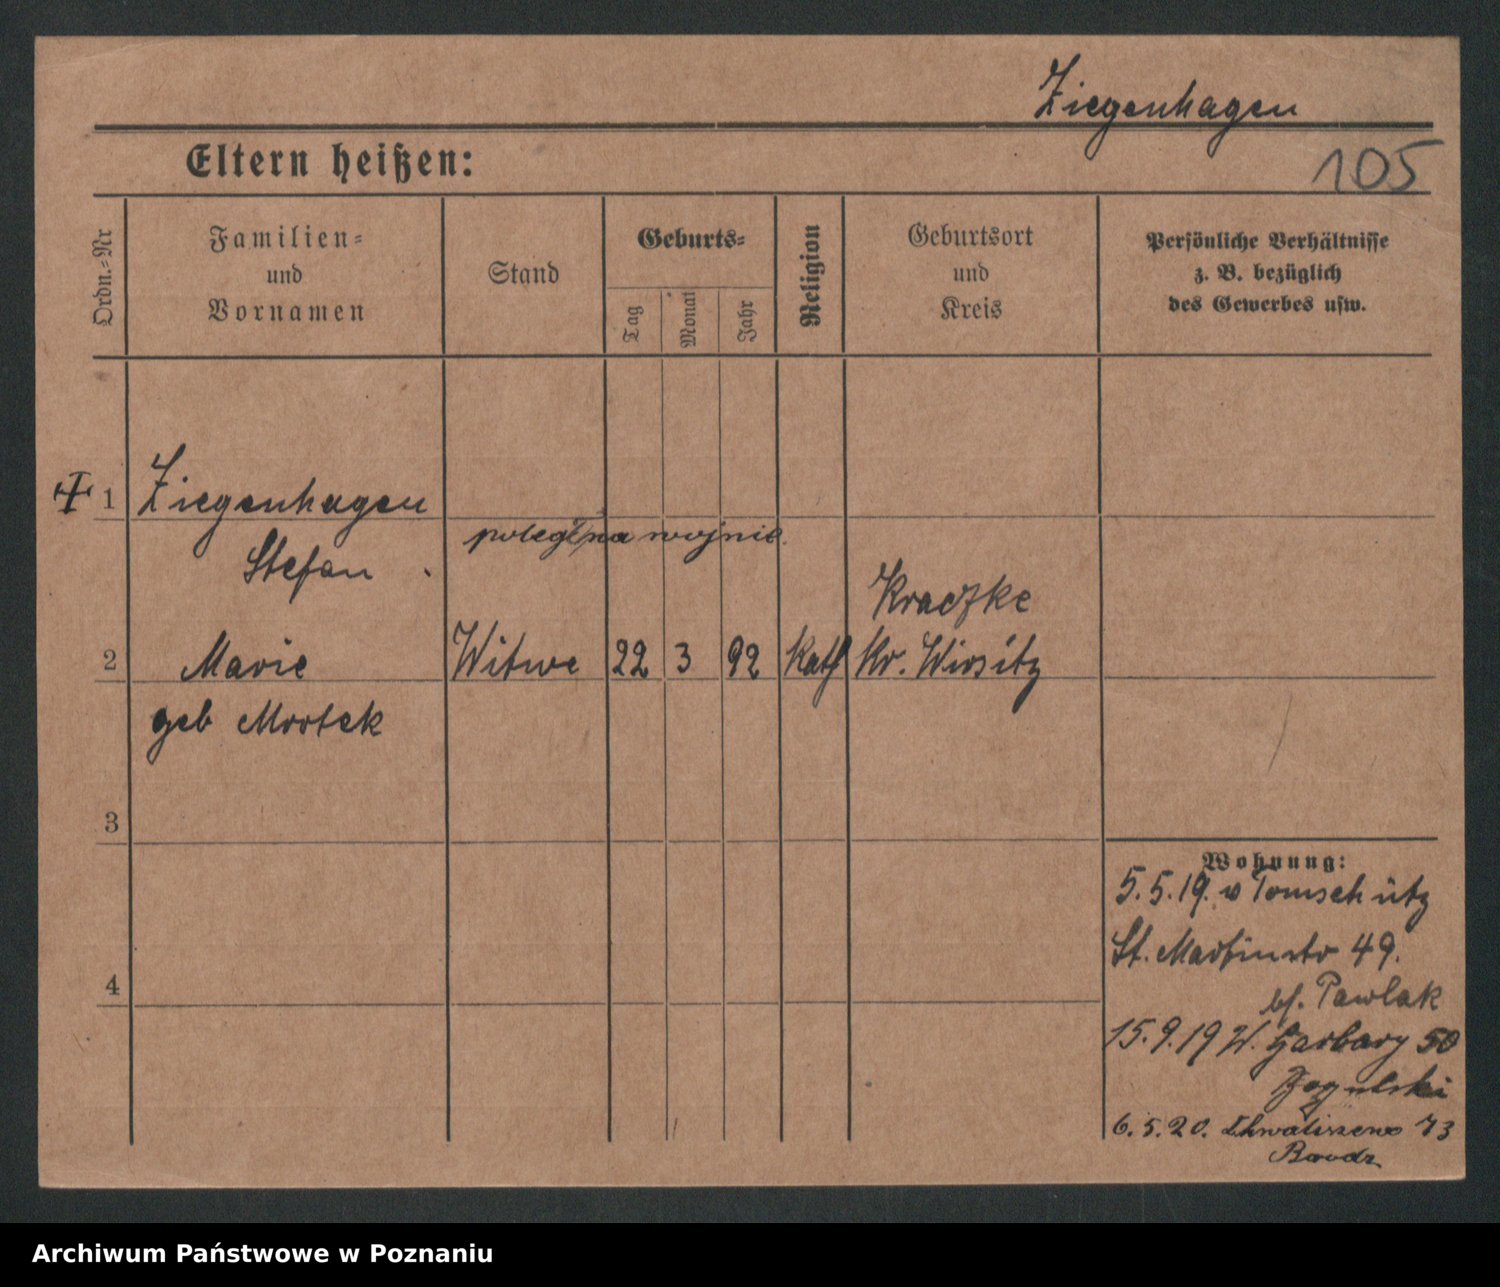 Ziegenhagen
Eltern heißen:
105
Ordn.=Nr
Familien=
und
Vornamen
Stand
Geburts=
Tag
Monat
Jahr
Religion
Geburtsort
und
Kreis
Persönliche Verhältnisse
z. B. bezüglich
des Gewerbes usw.
1 Ziegenhagen
poległ na wojnie.
Stefan
Kraczke
2 Marie Witwe 22 3 92 Kath Kr. Wirsitz
geb Mrotek
3
Wohnung:
5.5.19. v Tomschütz
St. Martinstr 49.
4
bf. Pawlak
15.9.19 W. Garbary 50
6.5.20. Chwaliszewo 73
Archiwum Państwowe w Poznaniu